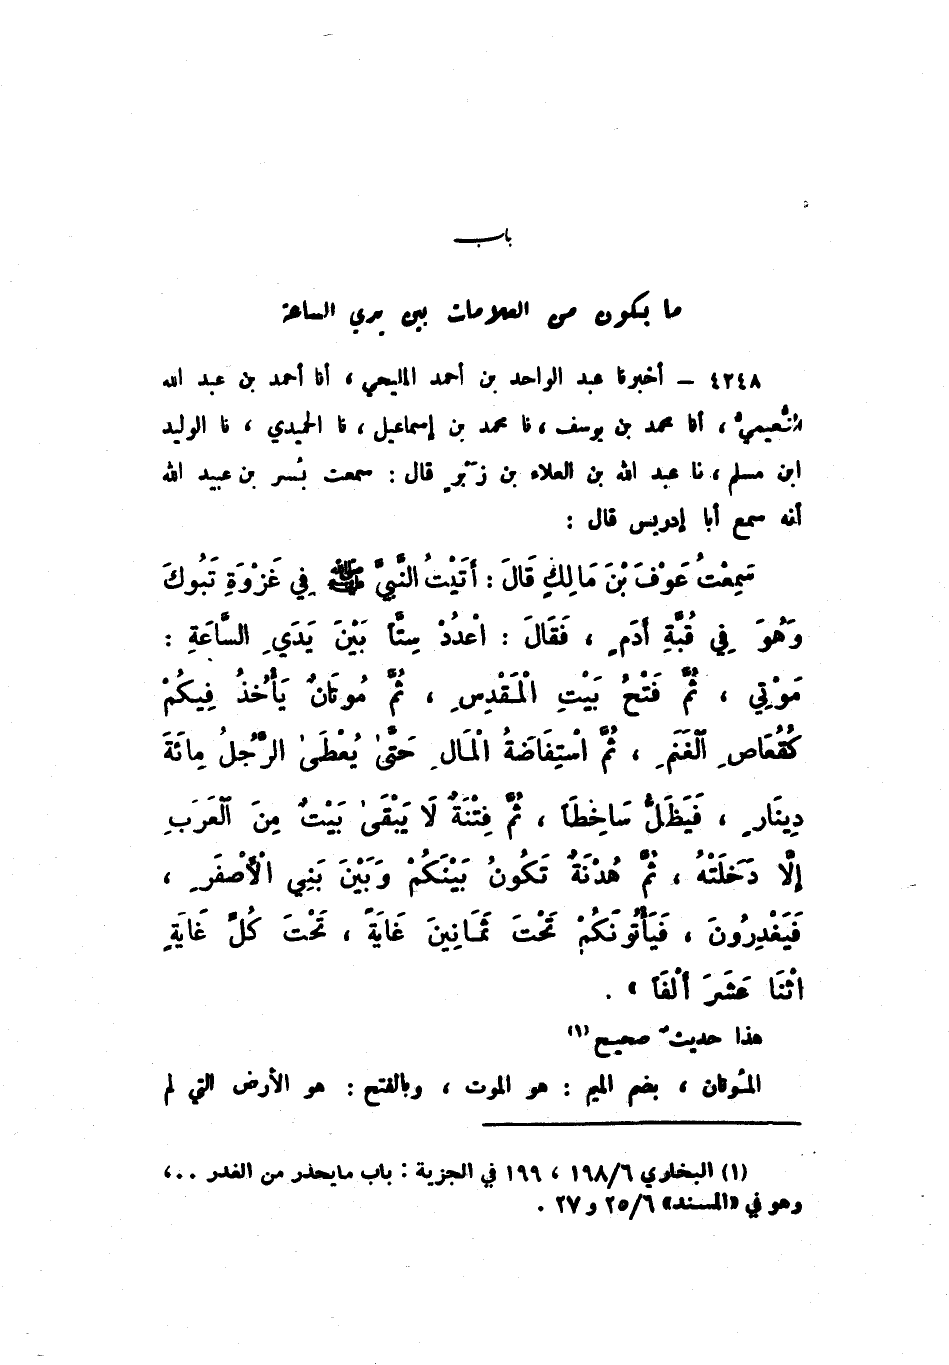 باب
ما يكون من العلامات بين يدي الساعة
٤٢٤٨ – أخبرنا عبد الواحد بن أحمد المليحي ، أنا أحمد بن عبد الله
النُّعيميُّ ، أنا محمد بن يوسف ، نا محمد بن إسماعيل ، نا الحميدي ، نا الوليد
ابن مسلم ، نا عبد الله بن العلاء بن زَبْرٍ قال : سمعت بُسر بن عبيد الله
أنه سمع أبا إدريس قال :
سَمِعْتُ عَوْفَ بْنَ مَالِكٍ قَالَ : أَتَيْتُ النَّبِيَّ ﷺ فِي غَزْوَةِ تَبُوكَ
وَهُوَ فِي قُبَّةِ أَدَمٍ ، فَقَالَ : اعْدُدْ سِتًّا بَيْنَ يَدَيِ السَّاعَةِ :
مَوْتِي ، ثُمَّ فَتْحُ بَيْتِ الْمَقْدِسِ ، ثُمَّ مُوتَانٌ يَأْخُذُ فِيكُمْ
كَقُعَاصِ الْغَنَمِ ، ثُمَّ اسْتِفَاضَةُ الْمَالِ حَتَّىٰ يُعْطَىٰ الرَّجُلُ مِائَةَ
دِينَارٍ ، فَيَظَلُّ سَاخِطًا ، ثُمَّ فِتْنَةٌ لَا يَبْقَىٰ بَيْتٌ مِنَ الْعَرَبِ
إِلَّا دَخَلَتْهُ ، ثُمَّ هُدْنَةٌ تَكُونُ بَيْنَكُمْ وَبَيْنَ بَنِي الْأَصْفَرِ ،
فَيَغْدِرُونَ ، فَيَأْتُونَكُمْ تَحْتَ ثَمَانِينَ غَايَةً ، تَحْتَ كُلِّ غَايَةٍ
اثْنَا عَشَرَ أَلْفًا » .
هذا حديثٌ صحيح (١)
المُوتان ، بضم الميم : هو الموت ، وبالفتح : هو الأرض التي لم
(١) البخاري ١٩٨/٦ ، ١٩٩ في الجزية : باب مايحذر من الغدر . . ،
وهو في «المسند» ٢٥/٦ و ٢٧ .